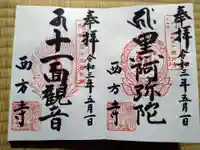 奉拝
令和三年五月一日
阿弥陀
西方寺
奉拝
令和三年五月一日
十一面観音
西方寺